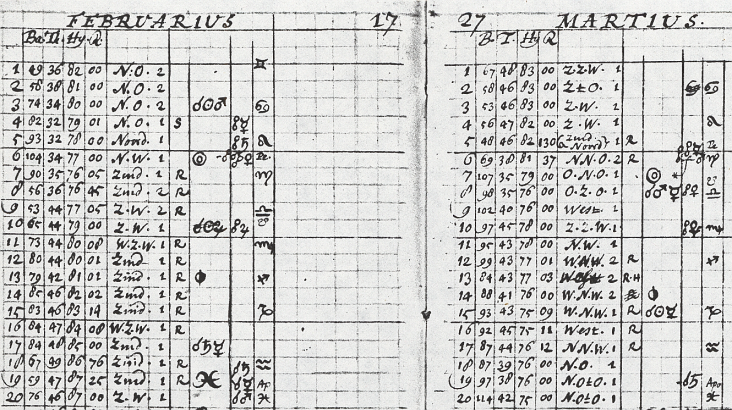 FEBRUARIUS 17
Ba T. Hy. R
1 49 36 82 00 N.O. 2
2 58 38 81 00 N.O. 2
3 74 34 80 00 N.O. 2 ☌☉♂ ♋
4 82 32 79 01 N.O. 1 S
5 93 32 78 00 Noord. 1 ♌
6 104 34 77 00 N.W. 1
7 90 35 76 05 Zuid. 1 R ♍
8 56 36 76 45 Zuid. 2 R
9 53 44 77 05 Z.W. 2 R ♎
10 65 44 79 00 Z.W. 1
11 73 44 80 08 W.Z.W. 1 R ♏
12 80 44 80 01 Zuid. 1 R
13 79 42 81 01 Zuid. 1 R ♐
14 85 46 82 02 Zuid. 1 R
15 83 46 83 14 Zuid. 1 R ♑
16 84 47 84 08 W.Z.W. 1 R
17 84 48 85 00 Zuid. 1 ☌♄☿
18 67 49 86 76 Zuid. 1 R ♒
19 59 47 87 25 Zuid 1 R
20 76 46 87 00 Z.W. 1
27 MARTIUS.
B. T. Hy R
1 67 48 83 00 Z.Z.W. 1
2 58 46 83 00 Z.t.O. 1 ♋
3 53 46 83 00 Z.W. 1
4 56 47 82 00 Z.W. 1 ♌
5 48 46 82 130 Zuid & Noord 1 R
6 69 38 81 37 N.N.O. 2 R ♍
7 107 35 79 00 O.N.O. 1
8 98 35 76 00 O.Z.O. 1 ♎
9 102 40 76 00 West. 1
10 97 45 78 00 Z.Z.W. 1 ♏
11 95 43 78 00 N.W. 1
12 99 43 77 01 W.N.W. 2 R ♐
13 84 43 77 03 2 R.H
14 88 41 76 00 W.N.W. 2
15 93 43 75 09 W.N.W. 1 R ☌☉☿ ♑
16 92 45 75 11 West. 1 R
17 87 44 76 12 N.N.W. 1 R ♒
18 87 39 76 00 N.O. 1
19 97 38 76 00 N.O.t.O. 1
20 114 42 75 00 N.O.t.O. 1